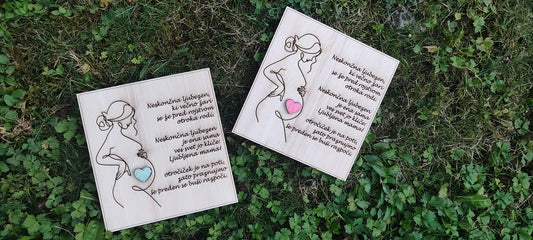 Neskončna ljubezen,
ki večno žari
se je pred rojstvom
otroka rodi.
Neskončna ljubezen
je ena sama,
ves svet jo kliče:
Ljubljena mama!
otročiček je na poti,
zato praznujmo
še preden se buši raspoči.
Neskončna ljubezen,
ki večno žari
se je pred rojstvom
otroka rodi.
Neskončna ljubezen
je ena sama,
ves svet jo kliče:
Ljubljena mama!
otročiček je na poti,
zato praznujmo
še preden se buši raspoči.